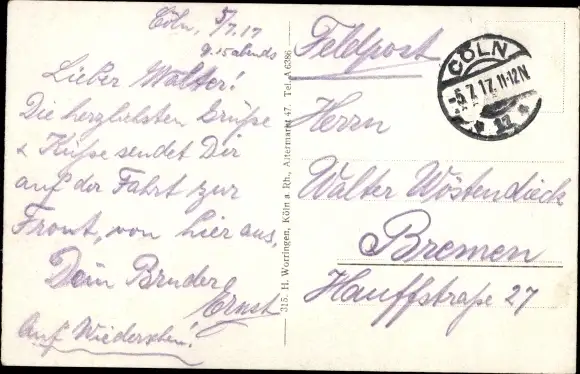 Cöln, 5/7.17
9.15 abends
Lieber Walter!
Die herzlichsten Grüße
& Küße sendet Dir
auf der Fahrt zur
Front, von hier aus,
Dein Bruder
Ernst
Auf Wiedersehen!
315. H. Worringen, Köln a. Rh., Altermarkt 47. Tel. A 6386
Feldpost
CÖLN
-5.7.17. 11-12N.
Herrn
Walter Wöstendieck
Bremen
Hauffstraße 27